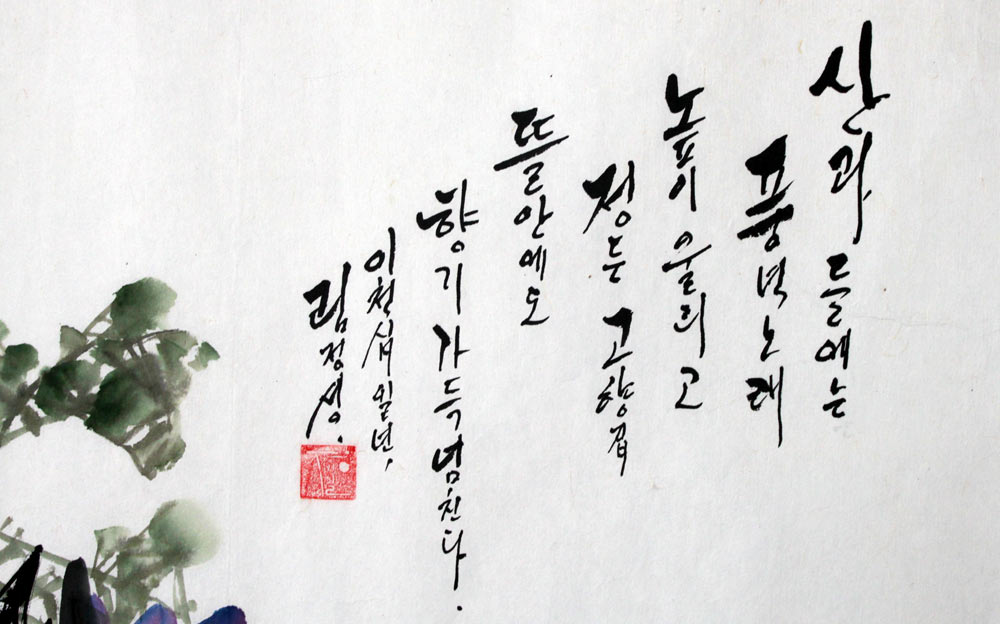 산과 들에는
풍년노래
높이 울리고
정든 고향집
뜰안에도
향기가득 넘친다.
이천십일년,
림정성.